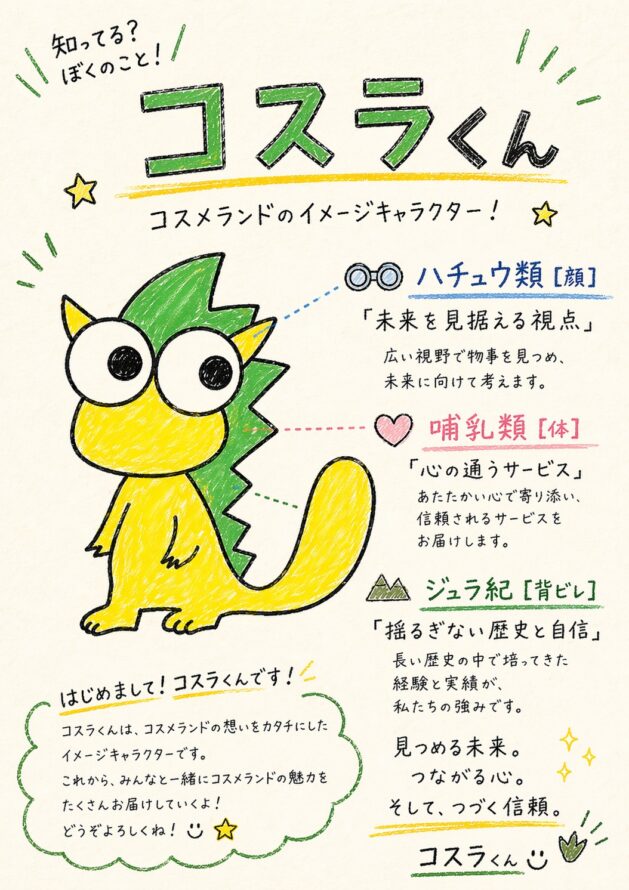 知ってる？
ぼくのこと！
コスラくん
コスメランドのイメージキャラクター！
ハチュウ類［顔］
「未来を見据える視点」
広い視野で物事を見つめ、
未来に向けて考えます。
哺乳類［体］
「心の通うサービス」
あたたかい心で寄り添い、
信頼されるサービスを
お届けします。
ジュラ紀［背ビレ］
「揺るぎない歴史と自信」
長い歴史の中で培ってきた
経験と実績が、
私たちの強みです。
はじめまして！コスラくんです！
コスラくんは、コスメランドの想いをカタチにした
イメージキャラクターです。
これから、みんなと一緒にコスメランドの魅力を
たくさんお届けしていくよ！
どうぞよろしくね！
見つめる未来。
つながる心。
そして、つづく信頼。
コスラくん